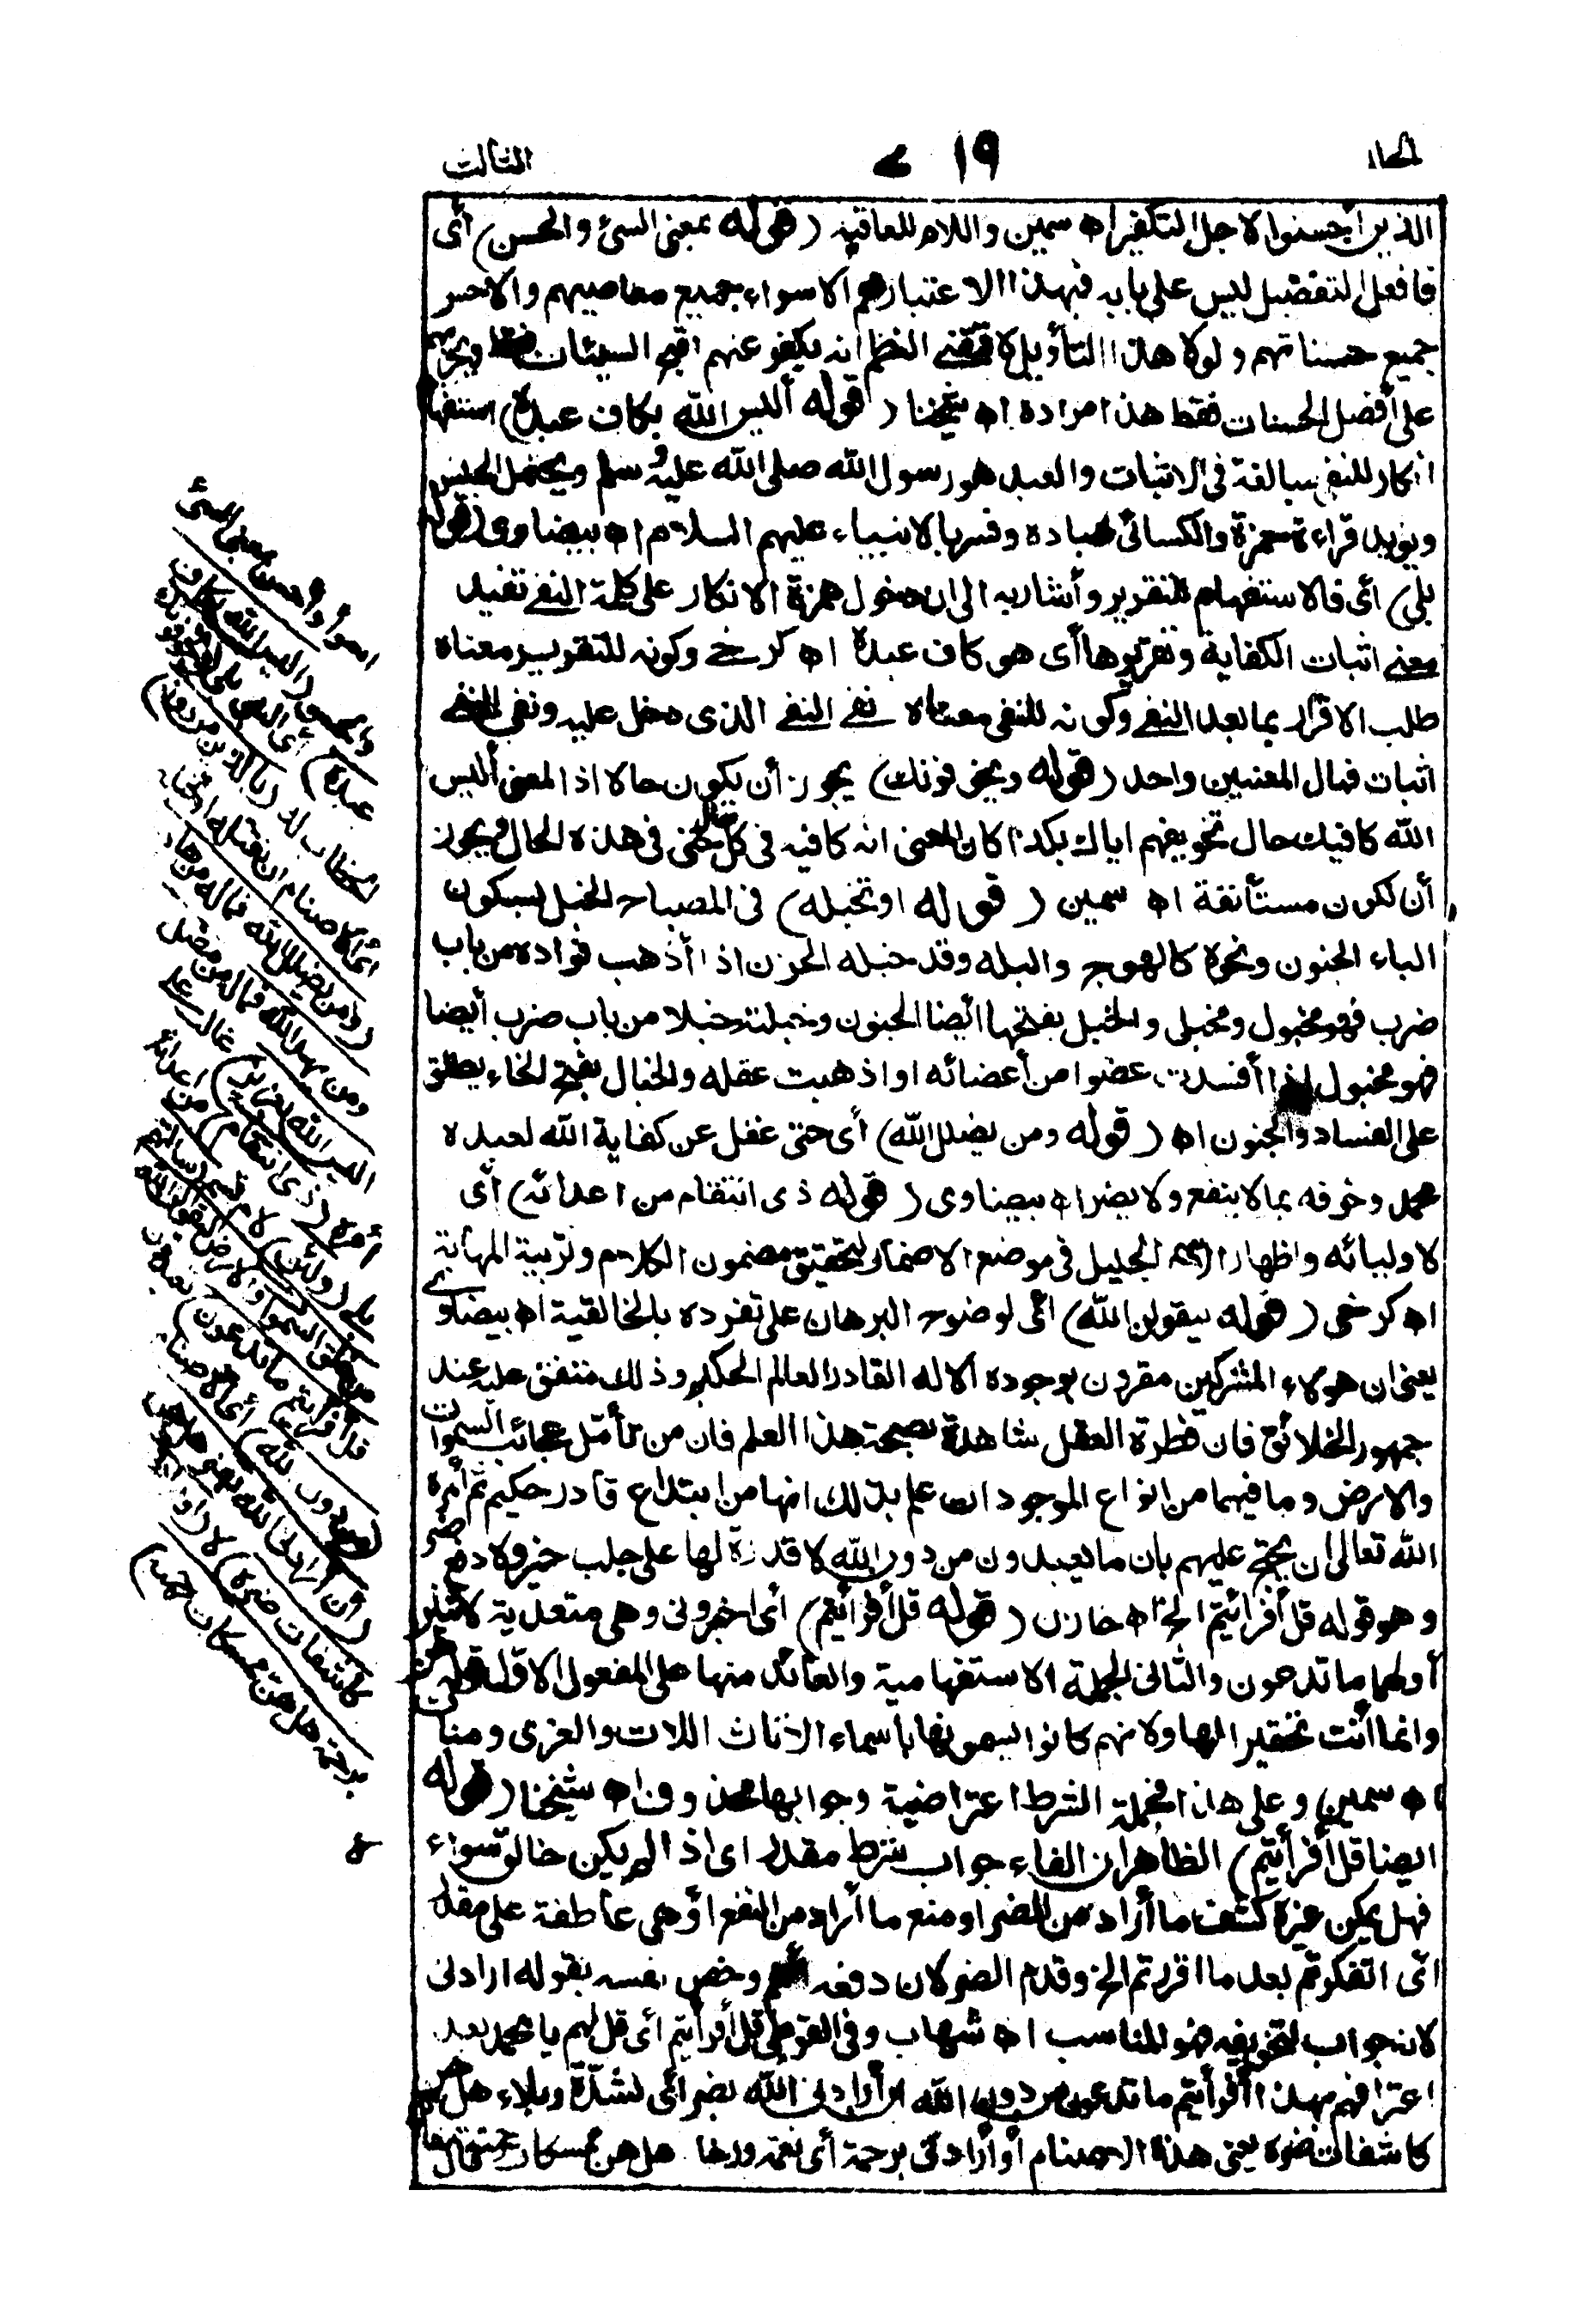 الثالث
١٩
الذين أحسنوا لاجل التكفير اه سمين واللام للعاقبة (قوله بمعنى السيئ والحسن) أى
فافعل التفضيل ليس على بابه فبهذا الاعتبار عم الاسواء جميع معاصيهم والاحسن
جميع حسناتهم ولولا هذا التأويل لاقتضى النظم انه يكفر عنهم اقبح السيئات فقط ويجزيهم
على أفضل الحسنات فقط هذا مراده اه شيخنا (قوله أليس الله بكاف عبده) استفهام
انكار للنفى مبالغة فى الاثبات والعبد هو رسول الله صلى الله عليه وسلم ويحتمل الجنس
ويؤيده قراءة حمزة والكسائى عباده وفسر بالانبياء عليهم السلام اه بيضاوى (قوله
بلى) أى فالاستفهام للتقرير وأشار به الى ان دخول همزة الانكار على كلمة النفى تفيد
معنى اثبات الكفاية وتقريرها أى هو كاف عبده اه كرخى وكونه للتقرير معناه
طلب الاقرار بما بعد النفى وكونه للنفى معناه نفى النفى الذى دخل عليه ونفى النفى
اثبات فمال المعنيين واحد (قوله ويخوفونك) يجوز أن يكون حالا اذ المعنى أليس
الله كافيك حال تخويفهم اياك بكذا كان المعنى انه كافيه فى كل حال حتى فى هذه الحال ويجوز
أن تكون مستأنفة اه سمين (قوله او تخبله) فى المصباح الخبل بسكون
الباء الجنون ونحوه كالهوج والبله وقد خبله الحزن اذا أذهب فؤاده من باب
ضرب فهو مخبول ومخبل والخبل بفتحها أيضا الجنون وخبلته خبلا من باب ضرب أيضا
فهو مخبول اذا أفسدت عضوا من أعضائه او اذهبت عقله والخبال بفتح الخاء يطلق
على الفساد والجنون اه (قوله ومن يضلل الله) أى حتى غفل عن كفاية الله لعبده
محمد وخوفه بما لا ينفع ولا يضر اه بيضاوى (قوله ذى انتقام من اعدائه) أى
لاوليائه واظهار الاسم الجليل فى موضع الاضمار لتحقيق مضمون الكلام وتربية المهابة
اه كرخى (قوله ليقولن الله) أى لوضوح البرهان على تفرده بالخالقية اه بيضاوى
يعنى ان هؤلاء المشركين مقرون بوجوده الاله القادر العالم الحكيم وذلك متفق عليه عند
جمهور الخلائق فان فطرة العقل شاهدة بصحة هذا العلم فان من تأمل عجائب السموات
والارض وما فيهما من انواع الموجودات علم بذلك انها من ابتداع قادر حكيم ثم أمره
الله تعالى ان يحتج عليهم بان ما يعبدون من دون الله لا قدرة لها على جلب خير ولا دفع ضر
وهو قوله قل أفرأيتم الخ اه خازن (قوله قل أفرأيتم) أى اخبرونى وهى متعدية لاثنين
أولهما ما تدعون والثانى الجملة الاستفهامية والعائد منها على المفعول الاول قوله هن
وانما أنث تحقيرا لها ولانهم كانوا يسمونها باسماء الاناث اللات والعزى ومناة
اه سمين وعلى هذا فجملة الشرط اعتراضية وجوابها محذوف اه شيخنا (قوله
ايضا قل أفرأيتم) الظاهر ان الفاء جواب شرط مقدر اى اذا لم يكن خالق سواء
فهل يمكن غيره كشف ما أراد من الضر او منع ما أراد من النفع أو هى عاطفة على مقدر
اى اتفكرتم بعد ما اقررتم الخ وقدم الضر لان دفعه أهم وخص نفسه بقوله ارادنى
لانه جواب لتخويفه فهو المناسب اه شهاب وفى القرطبى قل أفرأيتم اى قل لهم يا محمد بعد
اعترافهم بهذا أفرأيتم ما تدعون من دون الله ان أرادنى الله بضر اى بشدة وبلاء هل هن
كاشفات ضره يعنى هذه الاصنام أو أرادنى برحمة أى نعمة ورخاء هل هن ممسكات رحمته
اسوأ وأحسن بمعنى السيئ
والحسن (أليس الله بكاف
عبده) أى النبى بلى (ويخوفونك)
الخطاب له (بالذين من دونه)
أى الاصنام ان تقتله او تخبله
(ومن يضلل الله فما له من هاد
ومن يهد الله فما له من مضل
أليس الله بعزيز) غالب على
أمره (ذى انتقام) من اعدائه
بلى (ولئن) لام قسم (سألتهم
من خلق السموات والارض ليقولن الله
قل أفرأيتم ما تدعون) تعبدون
(من دون الله) أى الاصنام
(ان ارادنى الله بضر هل هن
كاشفات ضره) لا (أو ارادنى
برحمة هل هن ممسكات رحمته)